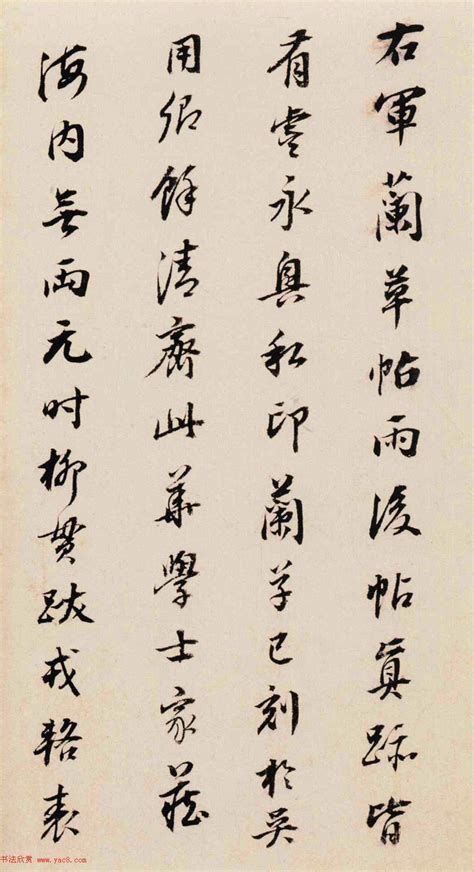 右軍蘭草帖雨後帖真跡皆
有虛永興私印蘭草已刻於吳
用卿餘清齋此華學士家藏
海內無兩元時柳貫跋戎輅表
书法欣赏 www.yac8.com